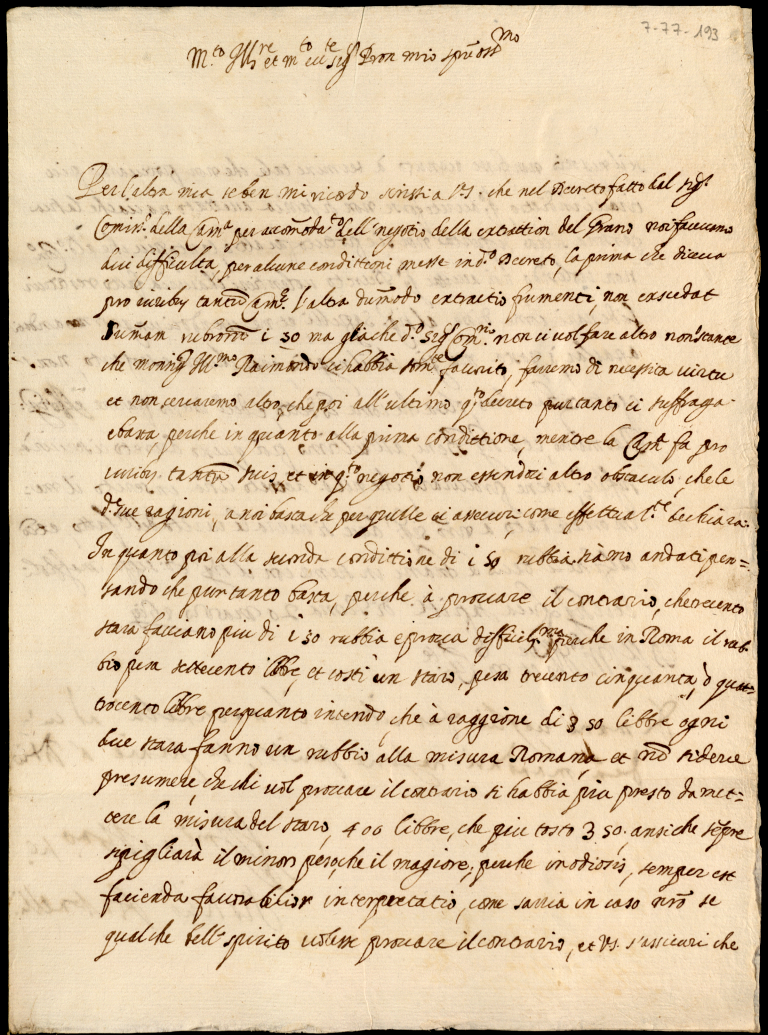 7-77-193
M.to Ill.re et m.to sig.r Pron mio
Per l'altra mia se ben mi ricordo scrissi a V.S. che nel Decreto fatto dal sig.r
Comiss.o della Cam.a per accomoda.to dell'negotio della extrattion del Grano noi facevamo
due difficulta, per alcune condittioni messe in d.o Decreto, la prima che diceva
pro iuribus tantum Cam.e l'altra dummodo extractio frumenti, non excedat
summam rubrorum 150 ma gia che d.o Sig.r Com.rio non ci vol fare altro non stante
che monsig.r Ill.mo Raimondo ci habbia favorito, faremo di necessita virtu
et non cercaremo altro, che poi all'ultimo q.to decreto pur tanto ci suffraga
e basta, perche in quanto alla prima condittione, mentre la Cam.a fa pro
iuribus tantum suis, et in q.to negotio non essendoci altro obstaculo, che le
d.e sue ragioni, a noi basta che per quelle ci assecuri, come effettual.te dechiara.
In quanto poi alla seconda condittione di 150 rubbia siamo andati pen=
sando che pur tanto basta, perche à provare il contrario, che trecento
stara facciano piu di 150 rubbia e prova difficil.ma perche in Roma il rub=
bio pesa settecento libre, et costi un staro, pesa trecento cinquanta, ò quat=
trocento libre per quanto intendo, che à raggione di 350 libbre ogni
due stara fanno un rubbio alla misura Romana et no si deve
presumere, che chi vol provare il contrario si habbia piu presto da met=
tere la misura del staro, 400 libbre, che piu tosto 350. ansi che sempre
si pigliarà il minor peso, che il magiore; perche in odiosis, semper est
facienda favorabilior interpretatio, come saria in caso nro se
qualche bell'spirito volesse provare il contrario, et V.S. s'assicuri che